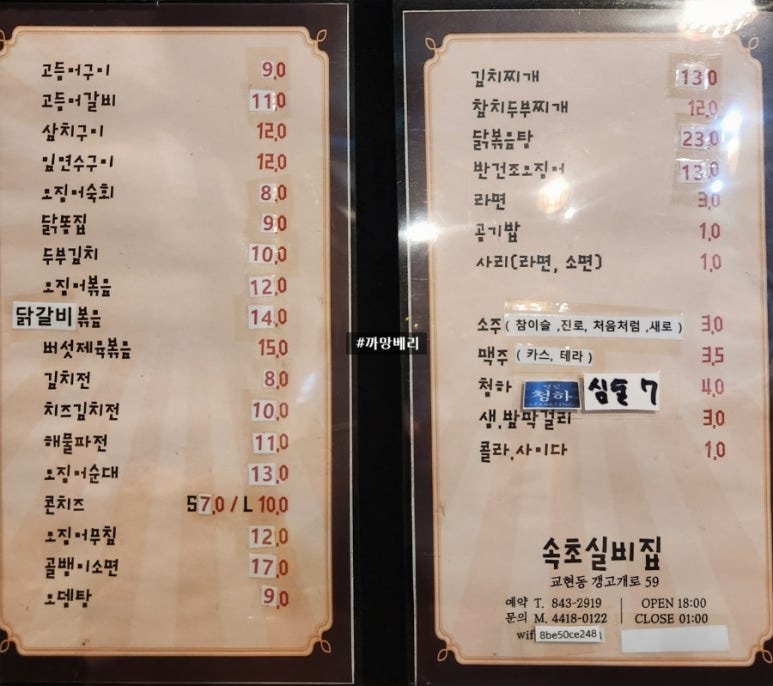 고등어구이 9.0
고등어갈비 11.0
삼치구이 12.0
임연수구이 12.0
오징어숙회 8.0
닭똥집 9.0
두부김치 10.0
오징어볶음 12.0
닭갈비볶음 14.0
버섯제육볶음 15.0
김치전 8.0
치즈김치전 10.0
해물파전 11.0
오징어순대 13.0
콘치즈 S 7.0 / L 10.0
오징어무침 12.0
골뱅이소면 17.0
오뎅탕 9.0
#까망베리
김치찌개 13.0
참치두부찌개 12.0
닭볶음탕 23.0
반건조오징어 13.0
라면 3.0
공기밥 1.0
사리(라면, 소면) 1.0
소주 ( 참이슬 ,진로, 처음처럼 ,새로 ) 3.0
맥주 ( 카스, 테라 ) 3.5
청하 청하 심술 7 4.0
생,밤막걸리 3.0
콜라,사이다 1.0
속초실비집
교현동 갱고개로 59
예약 T. 843-2919 | OPEN 18:00
문의 M. 4418-0122 | CLOSE 01:00
wifi 8be50ce248